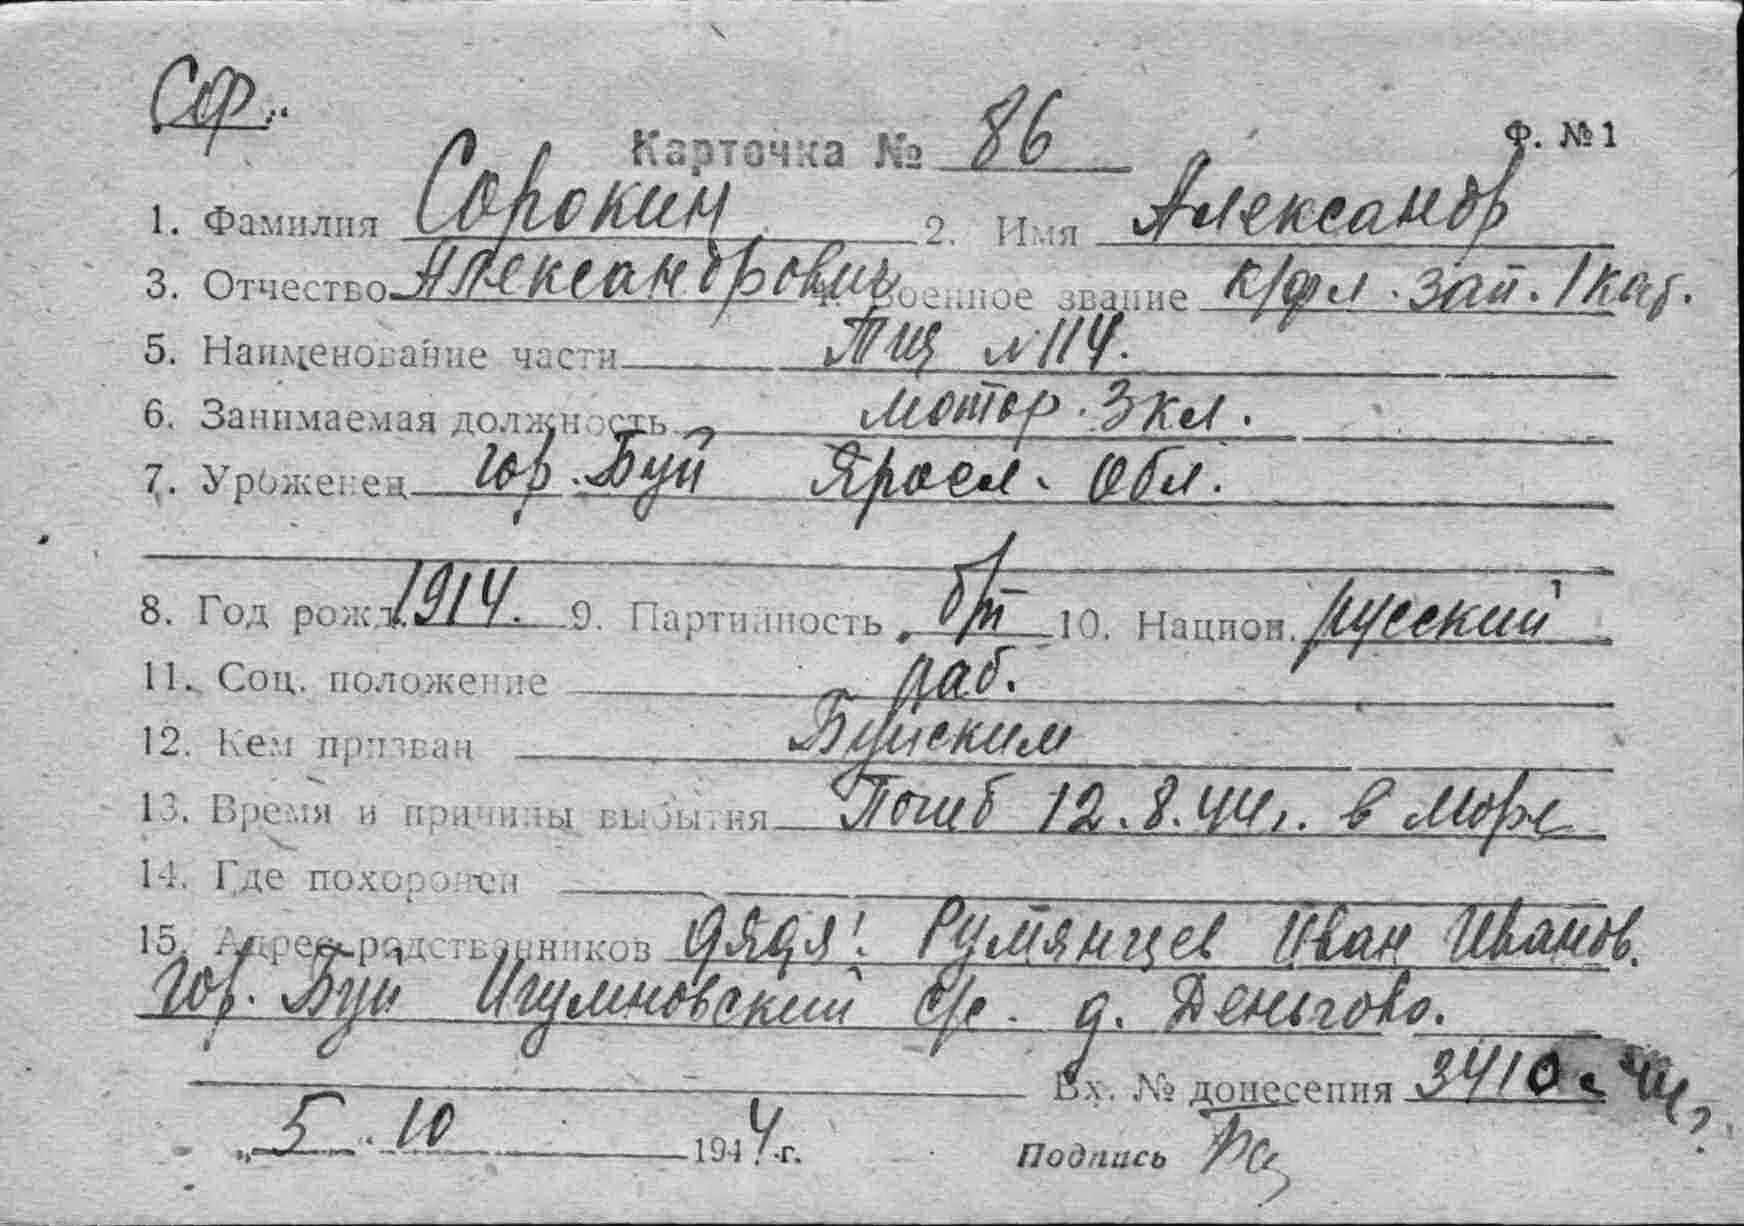 СФ.
Карточка № 86
Ф. № 1
1. Фамилия Сорокин 2. Имя Александр
3. Отчество Александрович 4. Военное звание к/фл. зап. 1 кат.
5. Наименование части Тщ №114.
6. Занимаемая должность мотор. 3 кл.
7. Уроженец гор. Буй Яросл. Обл.
8. Год рожд. 1914. 9. Партийность б/п 10. Национ. русский
11. Соц. положение раб.
12. Кем призван Буйским
13. Время и причины выбытия Погиб 12.8.44г. в море
14. Где похоронен
15. Адрес родственников дядя: Румянцев Иван Иванов.
гор. Буй Игумновский с/с. д. Деньгово.
Вх. № донесения 3410с
5. 10 1944 г. Подпись